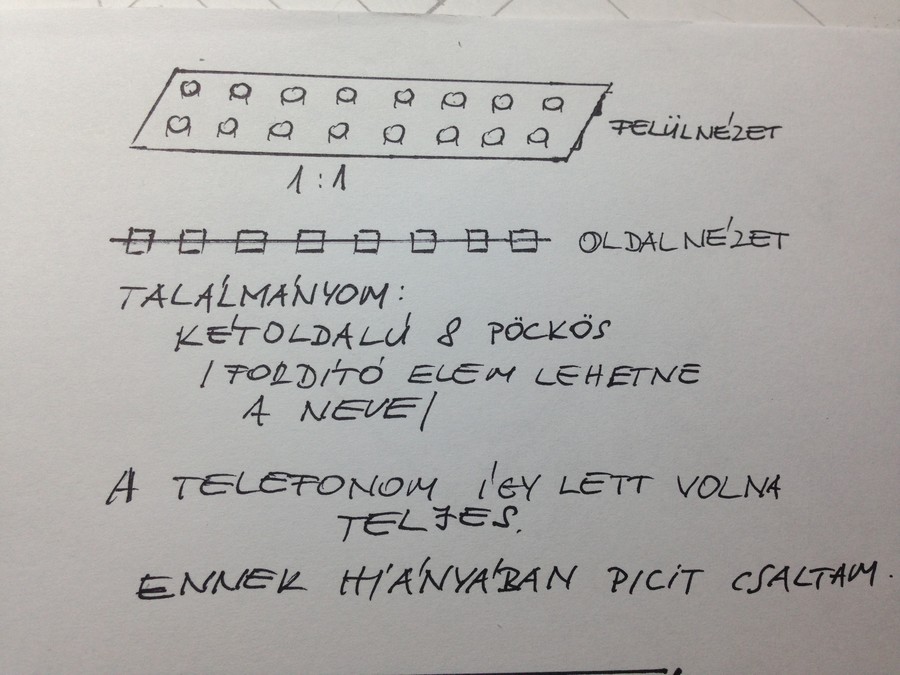 FELÜLNÉZET
1:1
OLDALNÉZET
TALÁLMÁNYOM:
KÉTOLDALÚ 8 PÖCKÖS
/FORDÍTÓ ELEM LEHETNE
A NEVE/
A TELEFONOM ÍGY LETT VOLNA
TELJES.
ENNEK HIÁNYÁBAN PICIT CSALTAM.